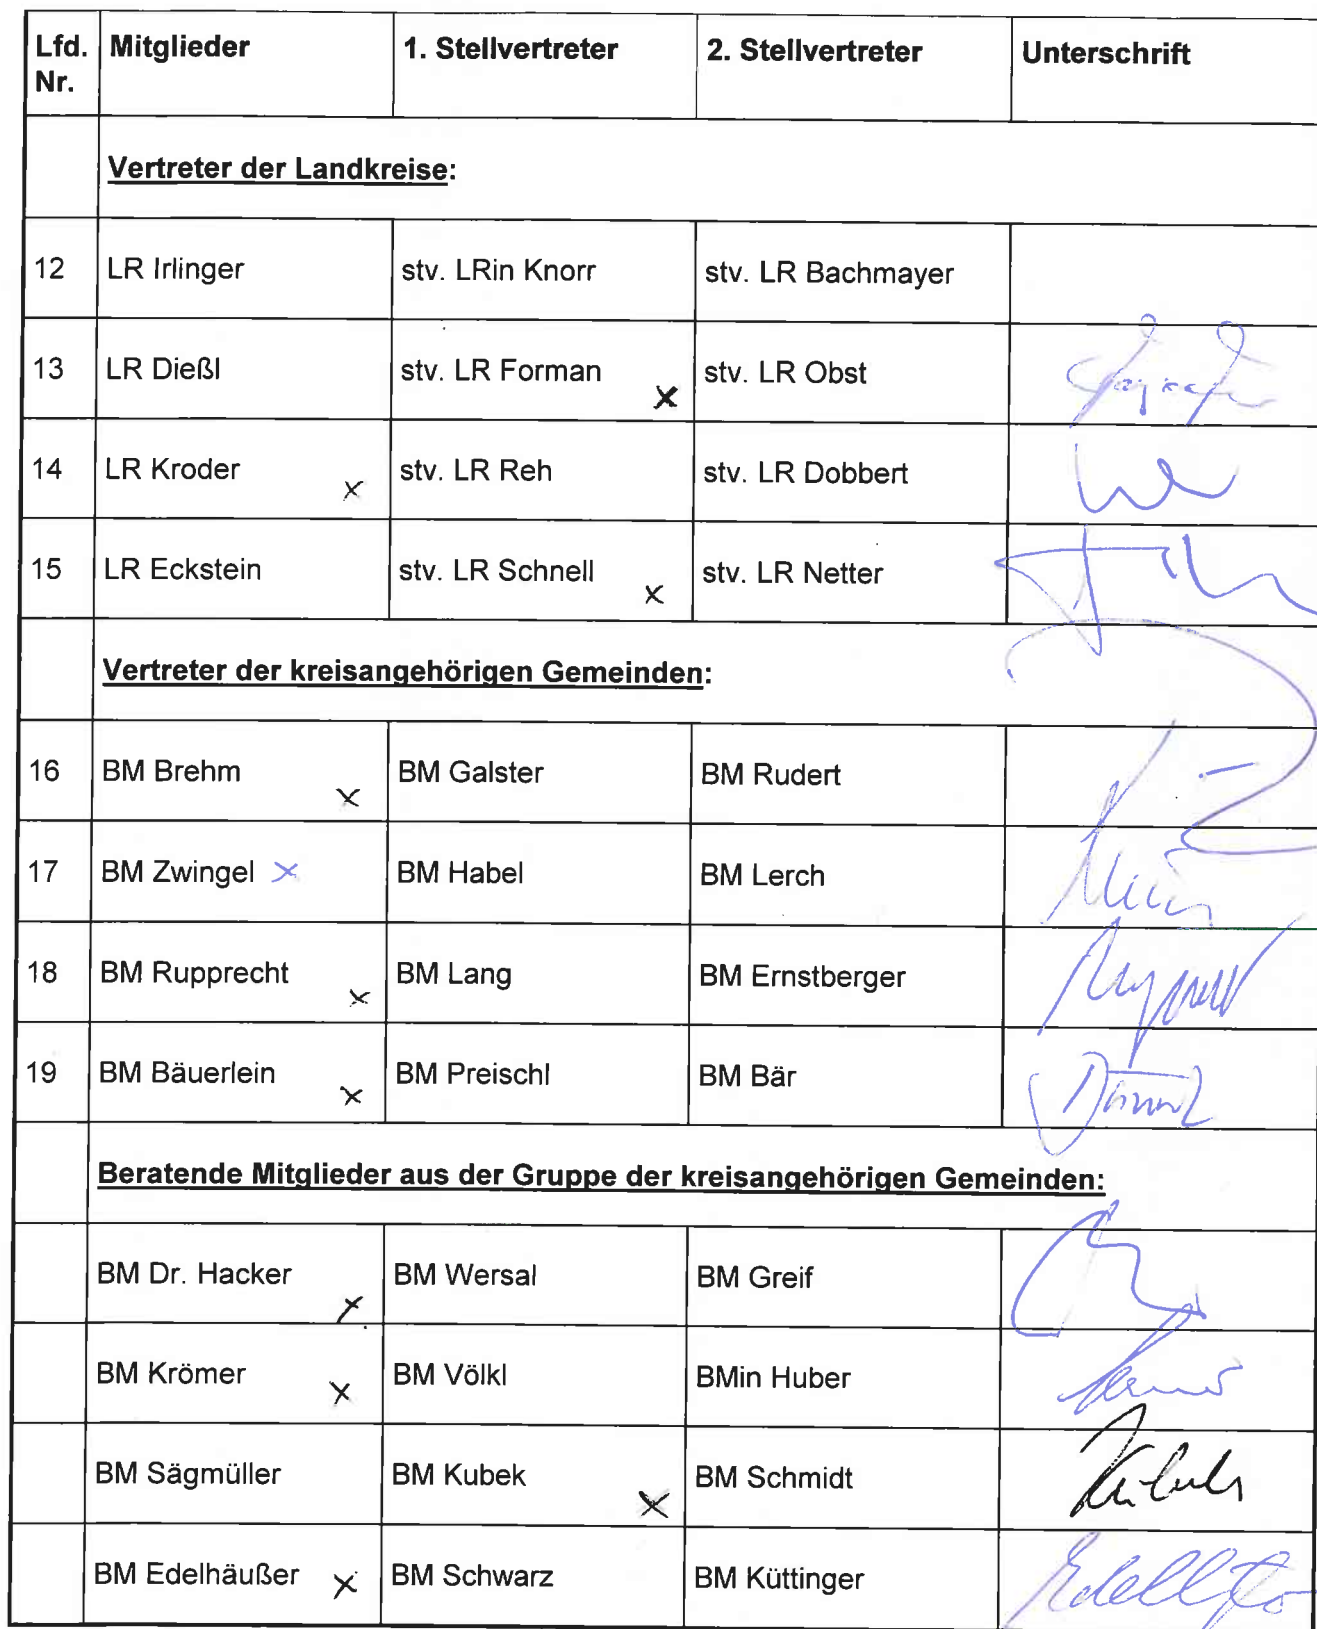 Lfd. Nr. Mitglieder 1. Stellvertreter 2. Stellvertreter Unterschrift
Vertreter der Landkreise:
12 LR Irlinger stv. LRin Knorr stv. LR Bachmayer
13 LR Dießl stv. LR Forman x stv. LR Obst
14 LR Kroder x stv. LR Reh stv. LR Dobbert
15 LR Eckstein stv. LR Schnell x stv. LR Netter
Vertreter der kreisangehörigen Gemeinden:
16 BM Brehm x BM Galster BM Rudert
17 BM Zwingel x BM Habel BM Lerch
18 BM Rupprecht x BM Lang BM Ernstberger
19 BM Bäuerlein x BM Preischl BM Bär
Beratende Mitglieder aus der Gruppe der kreisangehörigen Gemeinden:
BM Dr. Hacker x BM Wersal BM Greif
BM Krömer x BM Völkl BMin Huber
BM Sägmüller BM Kubek x BM Schmidt
BM Edelhäußer x BM Schwarz BM Küttinger